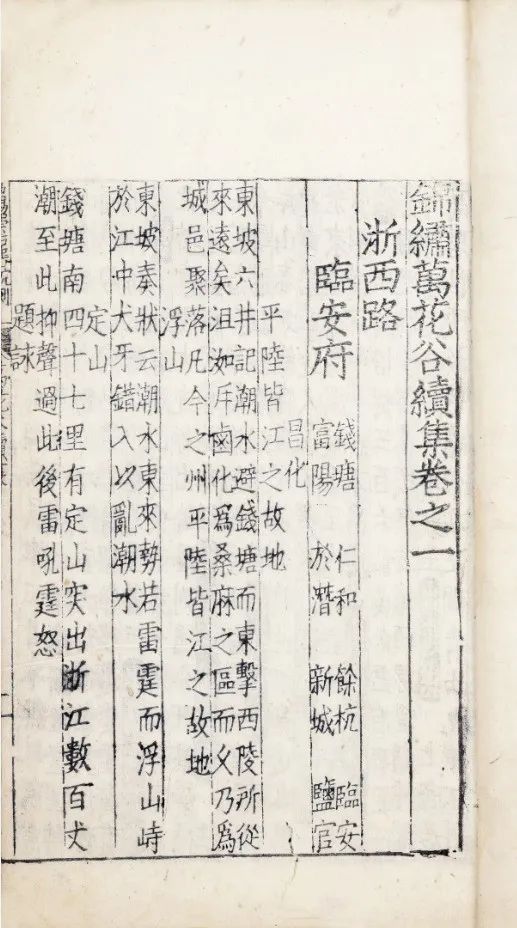 錦繡萬花谷續集卷之一
浙西路
臨安府
錢塘 仁和 餘杭 臨安
富陽 於潛 新城 鹽官
昌化
平陸皆江之故地
東坡六井記潮水避錢塘而東擊西陵所從
來遠矣沮洳斥鹵化為桑麻之區而久乃為
城邑聚落凡今之州平陸皆江之故地
浮山
東坡奏狀云潮水東來勢若雷霆而浮山峙
於江中犬牙錯入以亂潮水
定山
錢塘南四十七里有定山突出浙江數百丈
潮至此抑聲過此後雷吼霆怒
題詠